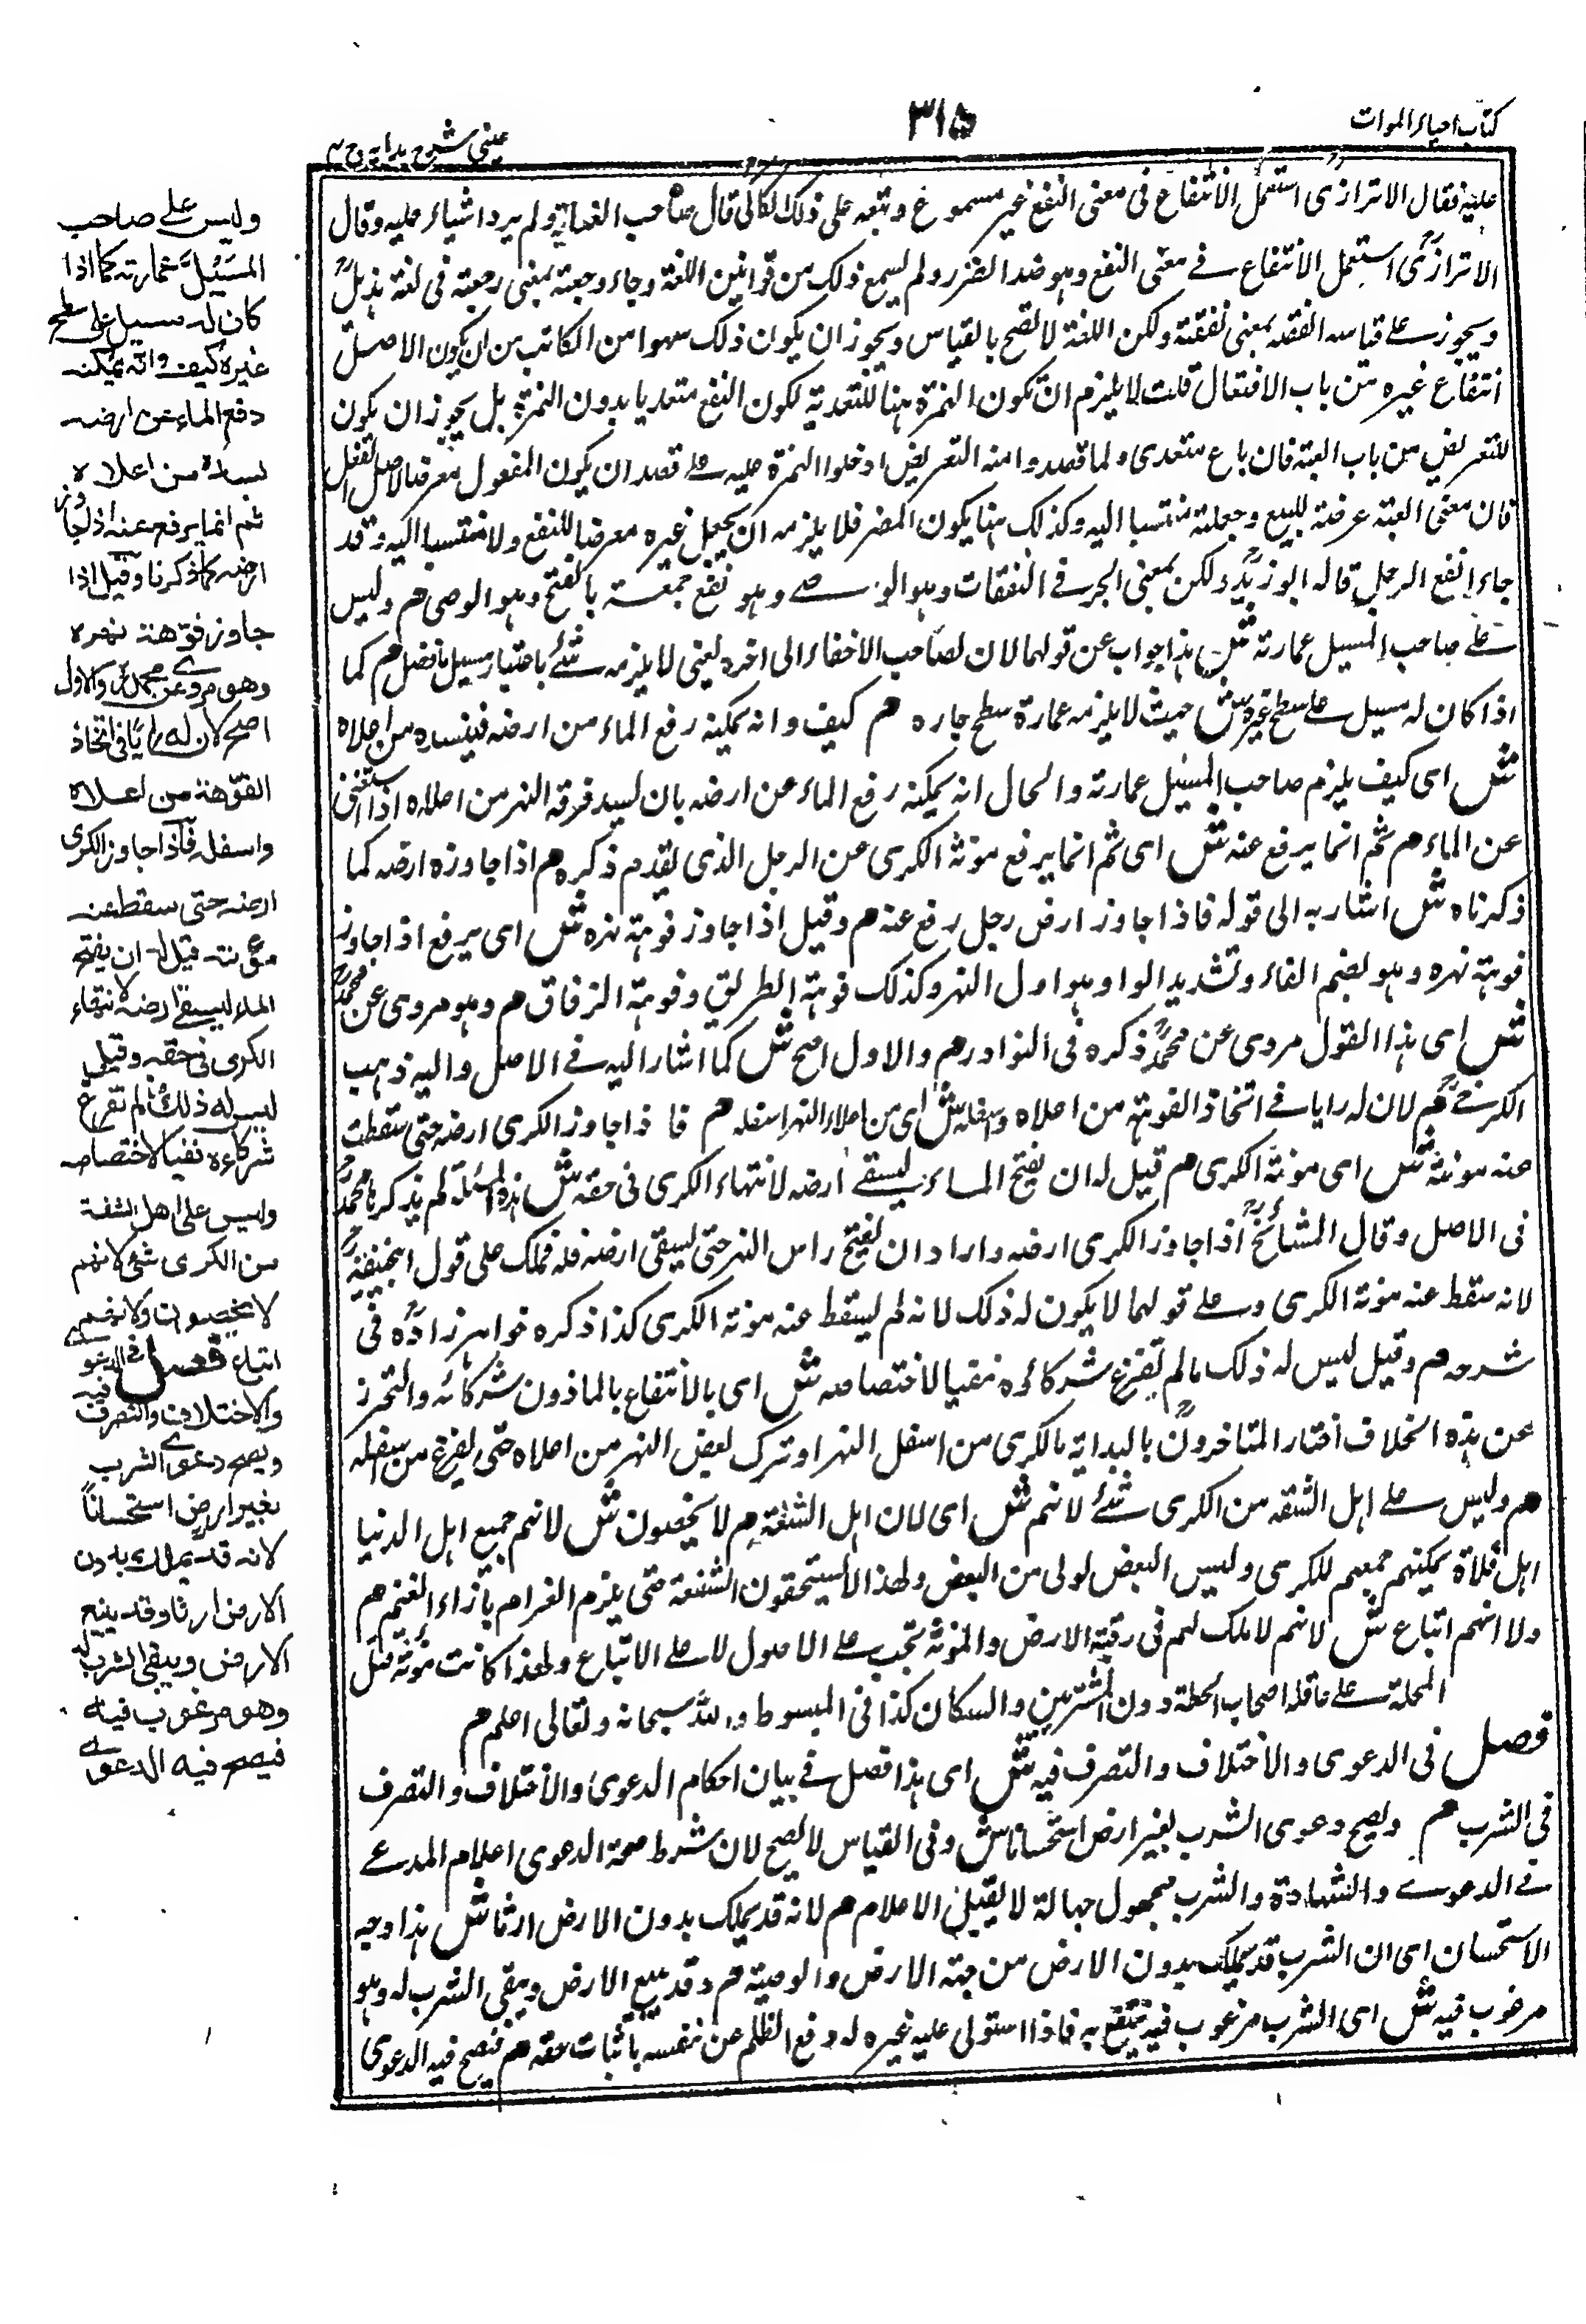 كتاب احياء الموات
٣١٥
عينى شرح هدايه ج ٣
عليه فقال الاترازى استعمل الانتفاع فى معنى النفع غير مسموع وتبعه على ذلك الكاكى قال صاحب العناية ولم يرد اشياء عليه وقال
الاترازى استعمل الانتفاع فى معنى النفع وهو ضد الضرر ولم يسمع ذلك من قوانين اللغة وجاء رجعته بمعنى رجعته فى لغة هذيل
ويجوز على قياسه الفقه بمعنى نفقته ولكن اللغة لا تصح بالقياس ويجوز ان يكون ذلك سهوا من الكاتب من ان يكون الاصل
انتفاع غيره من باب الافتعال قلت لا يلزم ان تكون الهمزة هنا للتعدية لكون النفع متعديا بدون الهمزة بل يجوز ان يكون
للتعريض من باب ابعته فان باع متعدى ولما قصدوا منه التعريض ادخلوا الهمزة عليه على قصد ان يكون المفعول معرضا لاصل الفعل
فان معنى ابعته عرضته للبيع وجعلته منتسبا اليه وكذلك هنا يكون المضر فلا يلزمه ان يجعل غيره معرضا للنفع ولا منتسبا اليه وقد
جاء انفع الرجل قاله ابو زيد ولكن بمعنى اتجر فى النفقات وهو العصى وهو نفع جمعه بالفتح وهو العصى هم وليس
على صاحب المسيل عمارته ش هذا جواب عن قولهما لان لصاحب الاخفاء الى اخره يعنى لا يلزمه شئ باعتبار مسيل ما فضل هم كما
اذا كان له مسيل على سطح غيره ش حيث لا يلزمه عمارة سطح جاره هم كيف وانه يمكنه رفع الماء من ارضه فيسده من اعلاه
ش اى كيف يلزم صاحب المسيل عمارته والحال انه يمكنه رفع الماء عن ارضه بان يسد فوهة النهر من اعلاه اذا استغنى
عن الماء هم ثم انما يرفع عنه ش اى ثم انما يرفع مؤنة الكرى عن الرجل الذى تقدم ذكره هم اذا جاوزه ارضه كما
ذكرناه ش اشار به الى قوله فاذا جاوز ارض رجل رفع عنه هم وقيل اذا جاوز فوهة نهره ش اى يرفع اذا جاوز
فوهة نهره وهو بضم الفاء وتشديد الواو وهو اول النهر وكذلك فوهة الطريق وفوهة الزقاق هم وهو مروى عن محمد
ش اى هذا القول مروى عن محمد ذكره فى النوادر هم والاول اصح ش كما اشار اليه فى الاصل واليه ذهب
الكرخى هم لان له رايا فى اتخاذ الفوهة من اعلاه واسفله ش اى من اعلاء النهر اسفله هم فاذا جاوز الكرى ارضه حتى سقطت
عنه مؤنته ش اى مؤنة الكرى هم قيل له ان يفتح الماء ليسقى ارضه لانتهاء الكرى فى حقه ش هذه المسئلة لم يذكرها محمد
فى الاصل وقال المشائخ اذا جاوز الكرى ارضه واراد ان يفتح راس النهر حتى يسقى ارضه فله ذلك على قول ابيحنيفة
لانه سقط عنه مؤنة الكرى وعلى قولهما لا يكون له ذلك لانه لم يسقط عنه مؤنة الكرى كذا ذكره خواهرزاده فى
شرحه هم وقيل ليس له ذلك مالم يفرغ شركاؤه نفيا لاختصاصه ش اى بالانتفاع بالماء دون شركائه والتحرز
عن هذه الخلاف اختار المتاخرون بالبداية بالكرى من اسفل النهر او ترك بعض النهر من اعلاه حتى يفرغ من اسفله
هم وليس على اهل الشفة من الكرى شئ لانهم ش اى لان اهل الشفة هم لا يحصون ش لانهم جميع اهل الدنيا
اهل فلاة يمكنهم جمعهم للكرى وليس البعض اولى من البعض ولهذا لا يستحقون الشفعة حتى يلزم الغرام بازاء الغنم هم
ولا انهم اتباع ش لانهم لا ملك لهم فى رقبة الارض والمؤنة تجب على الاصول لا على الاتباع ولهذا كانت مؤنة قتيل
المحلة على عاقلة اصحاب الخطة دون المشترين والسكان كذا فى المبسوط والله سبحانه وتعالى اعلم هم
فصل فى الدعوى والاختلاف والتصرف فيه ش اى هذا فصل فى بيان احكام الدعوى والاختلاف والتصرف
فى الشرب هم ويصح دعوى الشرب بغير ارض استحسانا ش وفى القياس لا يصح لان شرط صحة الدعوى اعلام المدعى
فى الدعوى والشهادة والشرب مجهول جهالة لا يقبل الاعلام هم لانه قد يملك بدون الارض ارثا ش هذا وجه
الاستحسان اى ان الشرب قد يملك بدون الارض من جهة الارض والوصية هم وقد يبيع الارض ويبقى الشرب له وهو
مرغوب فيه ش اى الشرب مرغوب فيه ينتفع به فاذا استولى عليه غيره له دفع الظلم عن نفسه باثبات حقه هم فيصح فيه الدعوى
وليس على صاحب
المسيل عمارته كما اذا
كان له مسيل على سطح
غيره كيف وانه يمكنه
دفع الماء عن ارضه
بسده من اعلاه
ثم انما يرفع عنه اذا جاوز
ارضه كما ذكرنا وقيل اذا
جاوز فوهة نهره
وهو مروى عن محمد والاول
اصح لان له رايا فى اتخاذ
الفوهة من اعلاه
واسفله فاذا جاوز الكرى
ارضه حتى سقط عنه
مؤنته قيل له ان يفتح
الماء ليسقى ارضه لانتهاء
الكرى فى حقه وقيل
ليس له ذلك مالم تفرغ
شركاءه نفيا لاختصاصه
وليس على اهل الشفة
من الكرى شئ لانهم
لا يحصون ولانهم
اتباع فصل فى الدعوى
والاختلاف والتصرف فيه
ويصح دعوى الشرب
بغير ارض استحساناً
لانه قد يملك بدون
الارض ارثا وقد يبيع
الارض ويبقى الشرب له
وهو مرغوب فيه
فيصح فيه الدعوى